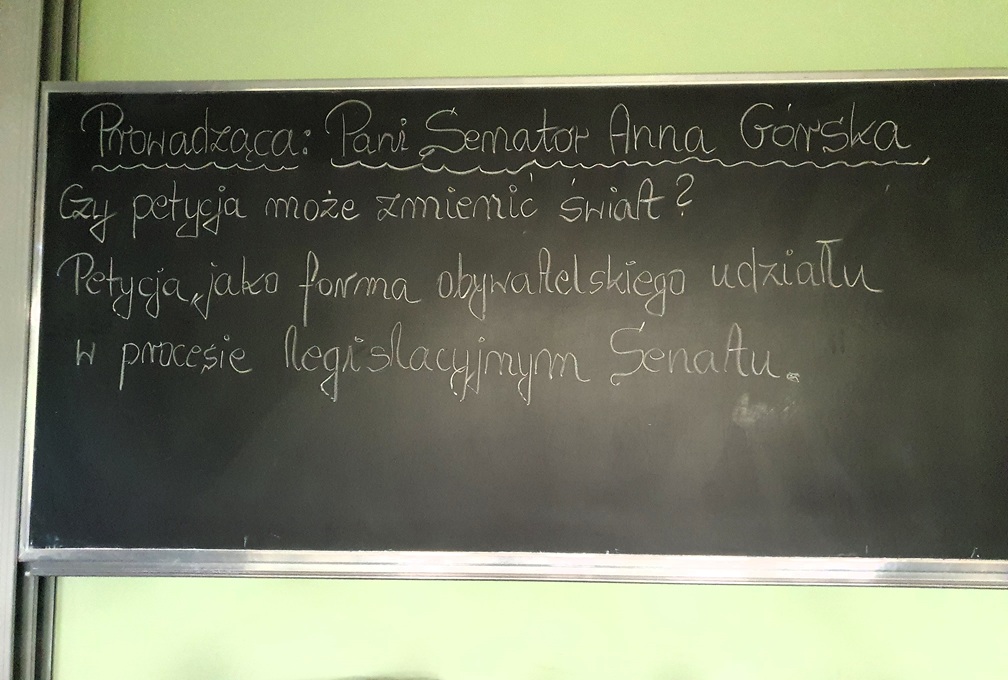 Prowadząca: Pani Senator Anna Górska
Czy petycja może zmienić świat?
Petycja, jako forma obywatelskiego udziału
w procesie legislacyjnym Senatu.